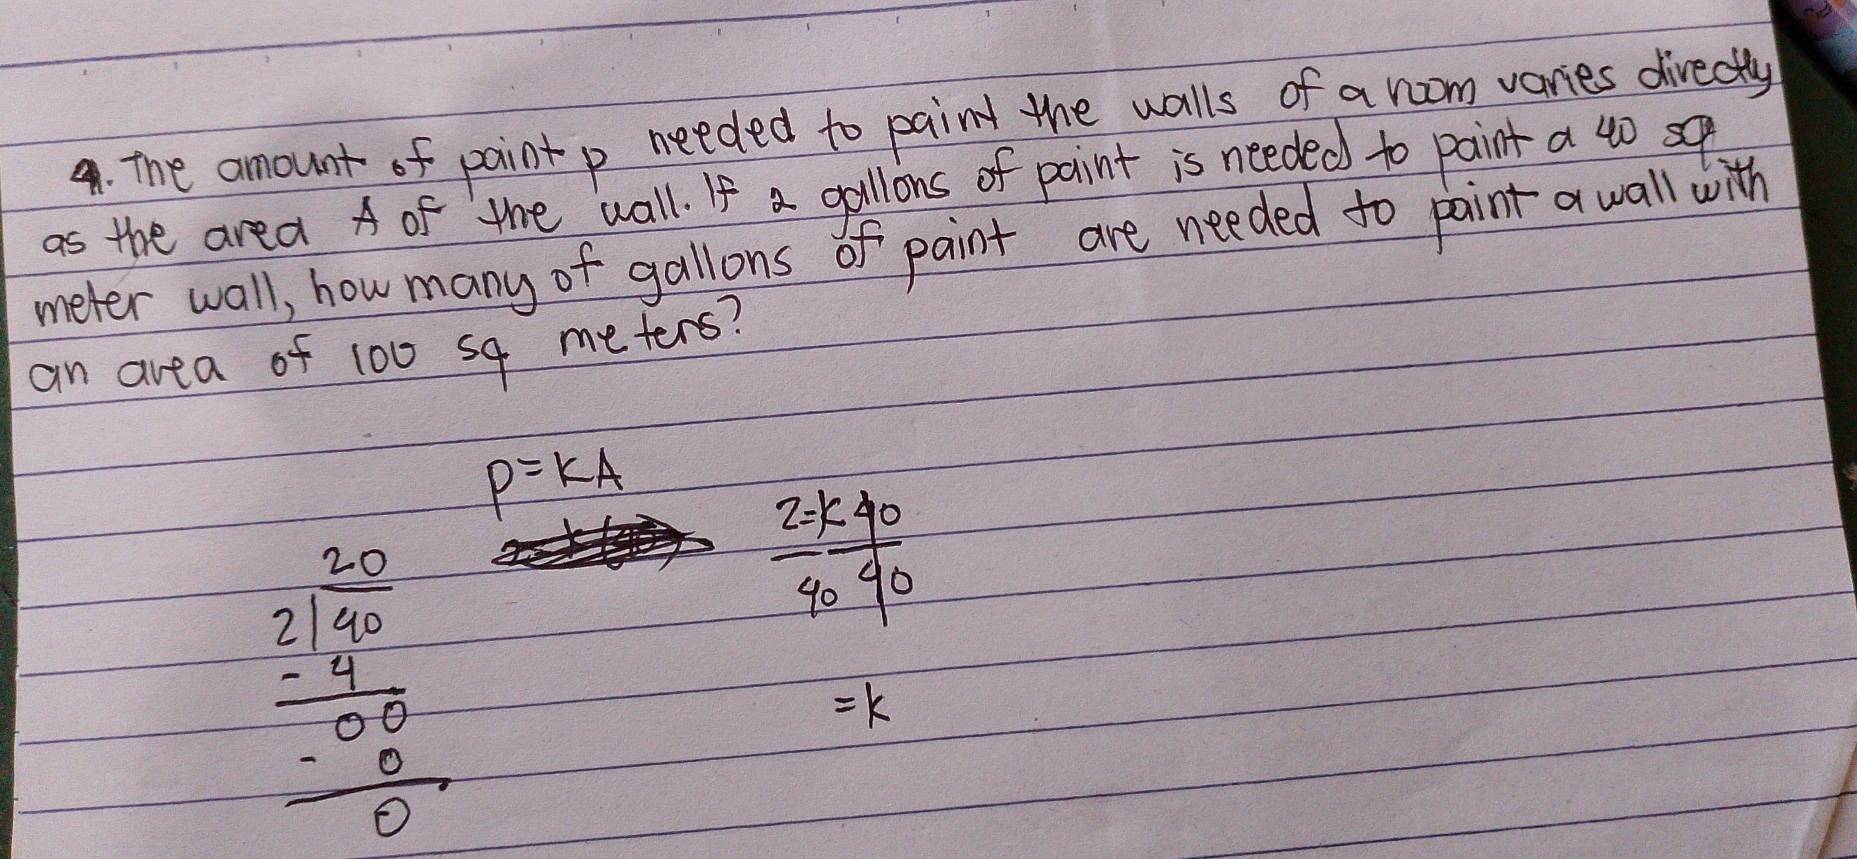 4. The amount of paint p needed to paint the walls of a room varies directly
as the area A of the wall. If 2 gallons of paint is needed to paint a 40 sq
meter wall, how many of gallons of paint are needed to paint a wall with
an area of 100 sq meters?
p=KA
2=K40
40 40
=K
20
2|40
-4
00
- 0
0